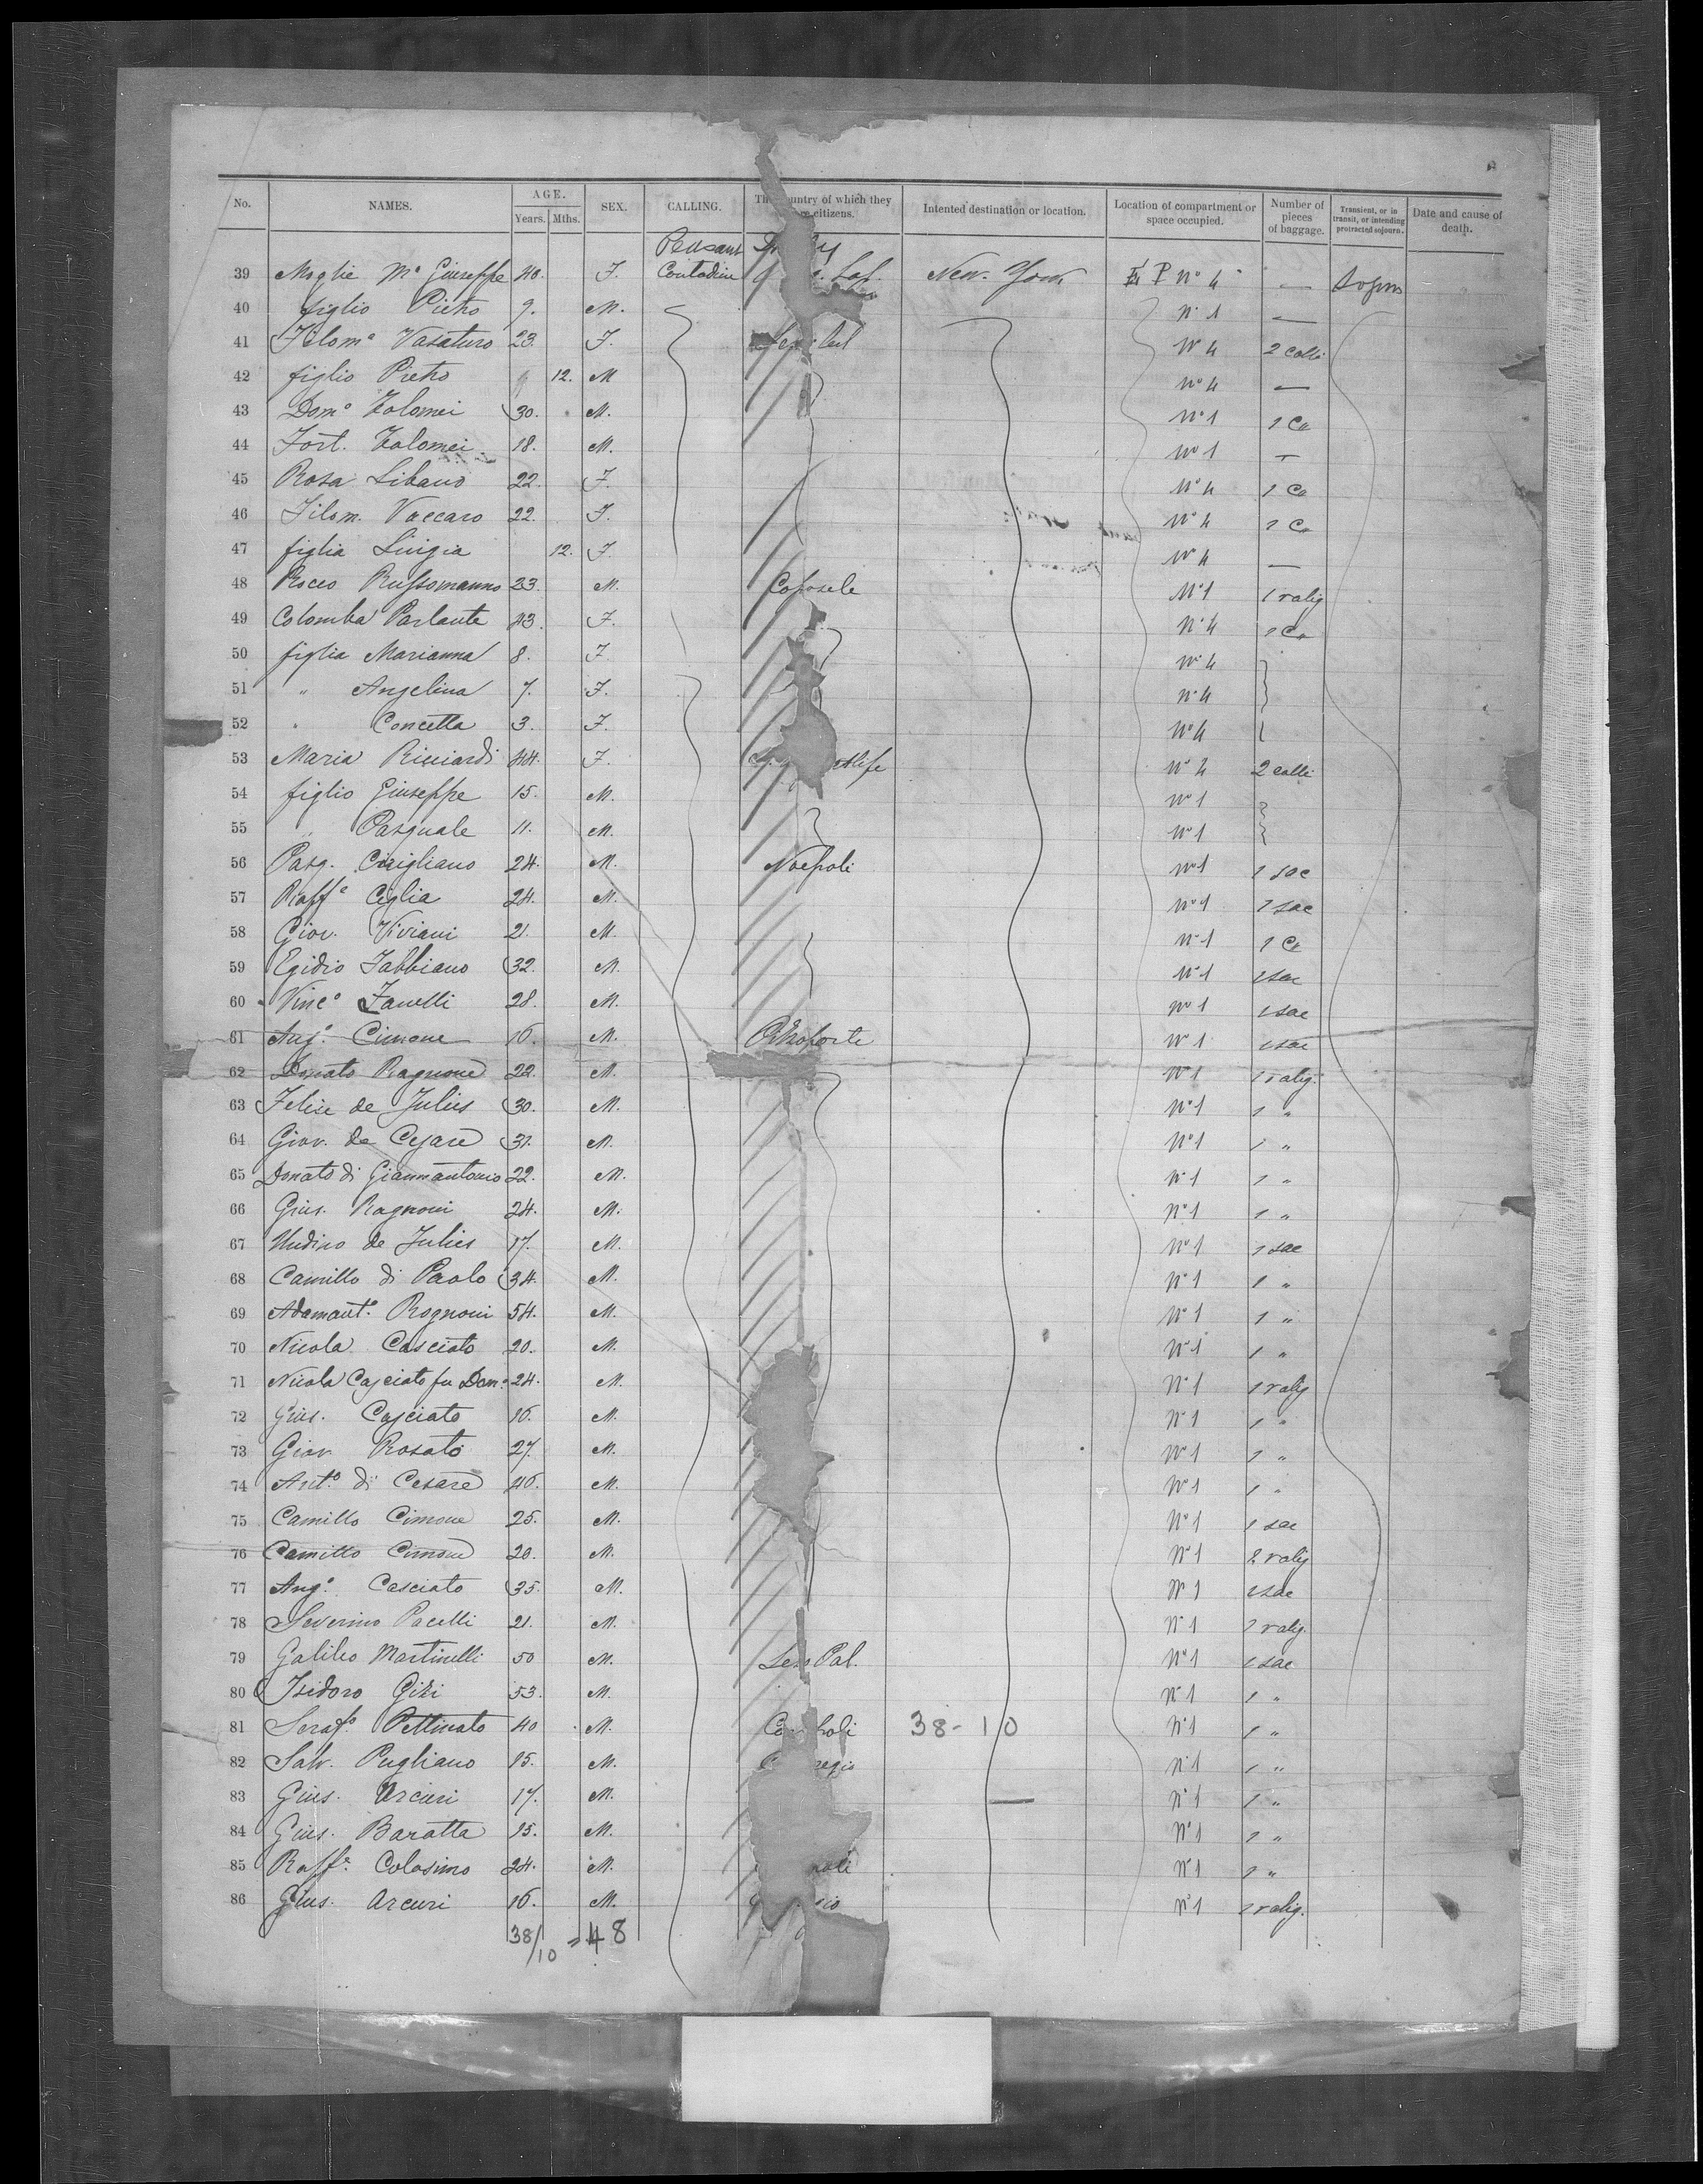 No. NAMES. AGE. Years. Mths. SEX. CALLING. The country of which they are citizens. Intented destination or location. Location of compartment or space occupied. Number of pieces of baggage. Transient, or in transit, or intending protracted sojourn. Date and cause of death.
Peasant
39 Moglie Mª Giuseppe 40. F. Contadine New-York P Nº 4 —
40 figlio Pietro 9. M. Nº 1 —
41 Filomª Vasaturo 23. F. Nº 4 2 colli
42 figlio Pietro 12. M Nº 4 —
43 Domº Tolomei 30. M. Nº 1 1 Ca
44 Fort. Tolomei 18. M. Nº 1 —
45 Rosa Libano 22. F. Nº 4 1 Ca
46 Filom. Vaccaro 22. F. Nº 4 1 Ca
47 figlia Luigia 12. F. Nº 4 —
48 Rocco Russomanno 23. M. Caposele Nº 1 1 valig
49 Colomba Parlante 43. F. Nº 4 1 Ca
50 figlia Marianna 8. F. Nº 4
51 " Angelina 7. F. Nº 4
52 " Concetta 3. F. Nº 4
53 Maria Ricciardi 44. F. Nº 4 2 colli
54 figlio Giuseppe 15. M. Nº 1
55 " Pasquale 11. M. Nº 1
56 Pasq. Cirigliano 24. M. Noepoli Nº 1 1 sac
57 Raffª Ciglia 24. M. Nº 1 1 sac
58 Giov. Viviani 21. M. Nº 1 1 Ca
59 Egidio Fabbiano 32. M. Nº 1 1 sac
60 Vincº Zanelli 28. M. Nº 1 1 sac
61 Angº Cimone 16. M. Nº 1 1 sac
62 Donato Ragnone 22. M. Nº 1 1 valig.
63 Felice de Julies 30. M. Nº 1 1 "
64 Giov. de Cesare 31. M. Nº 1 1 "
65 Donato di Gianmantonio 22. M. Nº 1 1 "
66 Gius. Ragnoni 24. M. Nº 1 1 "
67 de Julies 17. M. Nº 1 1 sac
68 Camillo di Paolo 34. M. Nº 1 1 "
69 Adamantº Rognoni 54. M. Nº 1 1 "
70 Nicola Casciato 20. M. Nº 1 1 "
71 Nicola Casciato fu Domº 24. M. Nº 1 1 valig
72 Gius. Casciato 16. M. Nº 1 1 "
73 Giov. Rosato 27. M. Nº 1 1 "
74 Antº di Cesare 46. M. Nº 1 1 "
75 Camillo Cimone 25. M. Nº 1 1 sac
76 Camillo Cimone 20. M. Nº 1 2 valig
77 Angº Casciato 35. M. Nº 1 1 sac
78 Severino Pacelli 21. M. Nº 1 1 valig.
79 Galileo Martinelli 50 M. Nº 1 1 sac
80 Isidoro Gizi 53. M. Nº 1 1 "
81 Serafº Pettinato 40 M. 38-10 Nº 1 1 "
82 Salv. Pugliano 15. M. Nº 1 1 "
83 Gius. Arcuri 17. M. Nº 1 1 "
84 Gius. Baratta 15. M. Nº 1 1 "
85 Raffº Colosimo 24. M. Nº 1 1 "
86 Gius. Arcuri 16. M. Nº 1 1 valig.
38/10 = 48